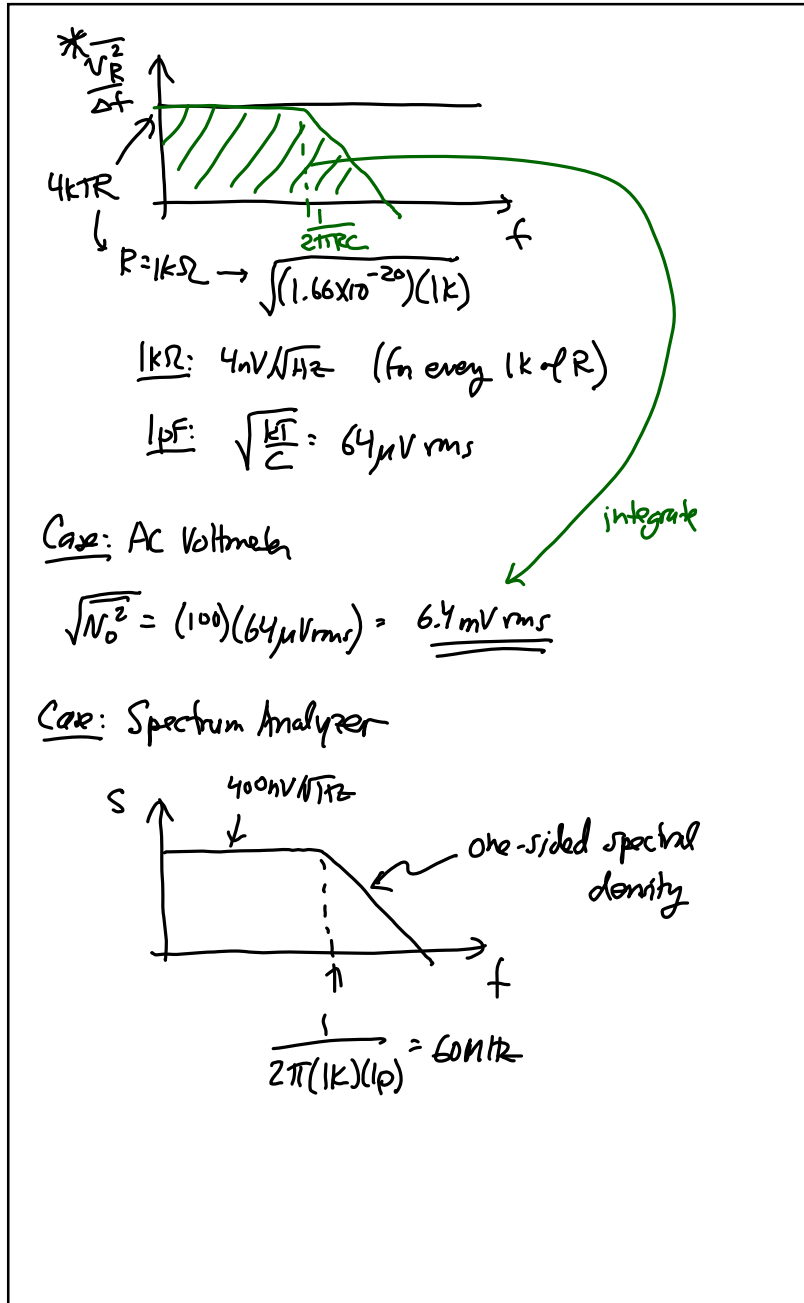 * v_R²‾/Δf
4kTR
1/(2πRC)
f
R=1kΩ → √((1.66X10⁻²⁰)(1k))
1kΩ: 4nV/√Hz (for every 1k of R)
1pF: √(kT/C) = 64μV rms
integrate
Case: AC Voltmeter
√(N_o²‾) = (100)(64μVrms) = 6.4mV rms
Case: Spectrum Analyzer
S
400nV/√Hz
one-sided spectral
density
f
1/(2π(1k)(1p)) = 60MHz